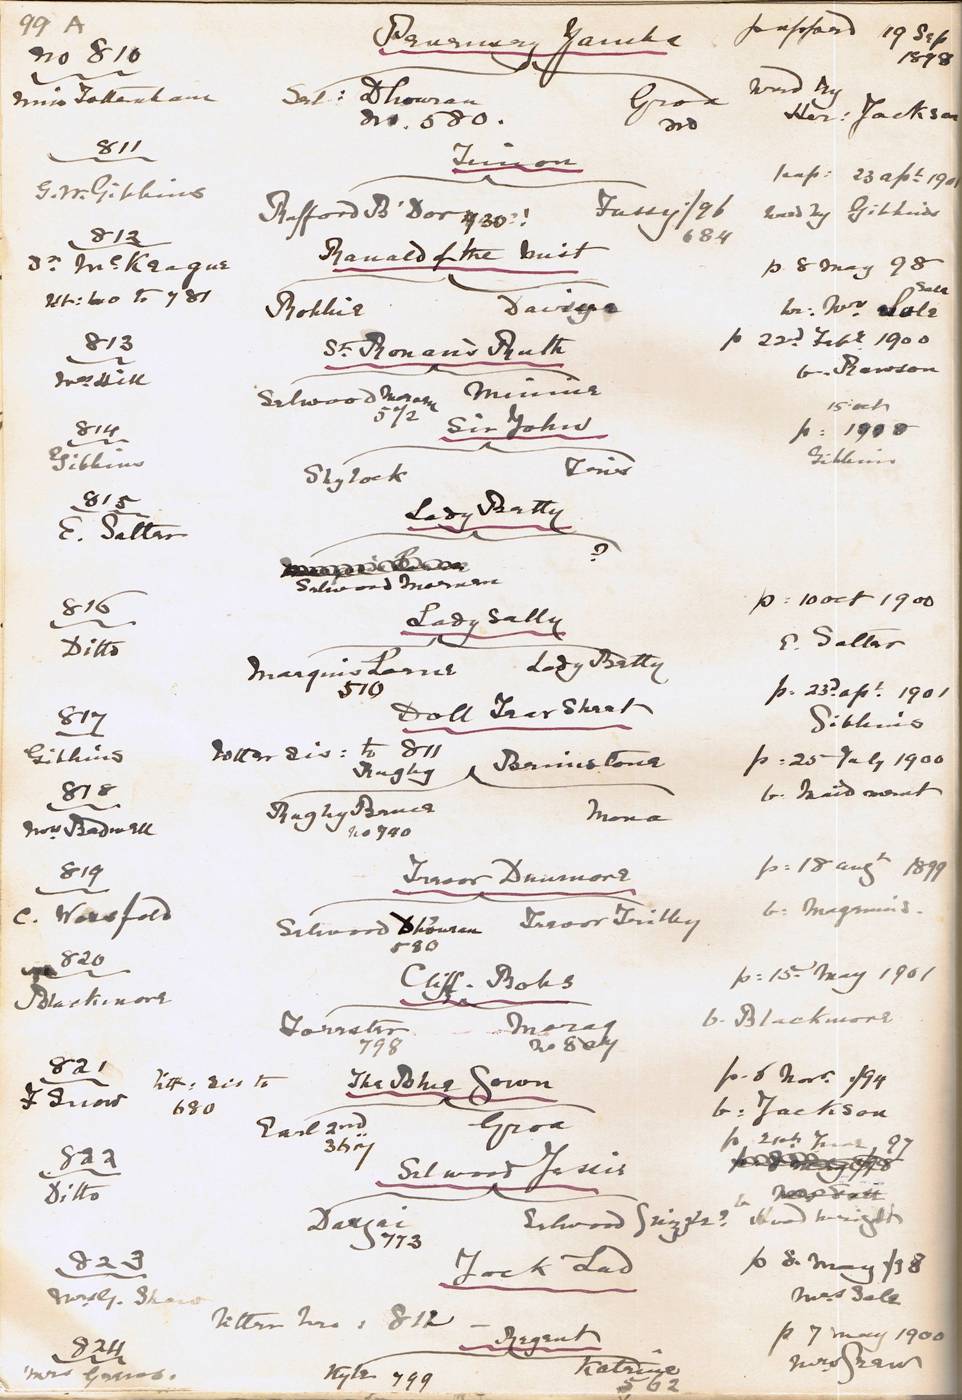 99 A
no 810 Yamba pupped 19 Sep 1898
Miss Tottenham Sel: Dhouran no. 580. Groa no bred by Her: Jackson
811 Timon pup: 23 apl 1901
G. W. Gibbins Rufford B' Dor 730 Fussy /96 684 bred by Gibbins
812 Ranald of the Mist p 8 May 98
Dr McKeague Robbie br: Mrs Sale
litt: bro to 781
813 St Ronan's Ruth p 22d Feb 1900
Mrs Hill Selwood Morven 572 Minnie b. Rawson
814 Sir John 15 Oct p: 1900
Gibbins Shylock Gibbins
815 Lady Betty
E. Salter ?
Selwood Morven
816 Lady Sally p: 10 Oct 1900
Ditto Marquis Lorne 510 Lady Betty E. Salter
817 Doll Tear Sheet p: 23d apl. 1901
Gibbins litter sis: to 811 Gibbins
818 Rugby Brimstone p: 25 July 1900
Mrs Badwell Rugby Bruce no 740 Mona b. Maidment
819 Trevor Dunmore p: 18 Augt 1899
C. Worsfold Selwood Dhouran 580 Trevor b: Magennis.
820 Cliff-Bobs p: 15 May 1901
Blackmore Forester 798 Morag b. Blackmore
821 The Blue Gown p. 6 Nov. /94
F Snow litt: sis to 680 Earl 2nd Groa b: Jackson
822 Selwood Jessie p 97
Ditto Dargai 773 Selwood Grizzle?
823 Jock Lad p 8 May /98
Mrs G. Shaw litter bro: 812 Mrs Sale
824 Regent p 7 May 1900
Mrs Kyle 799 Katrine 562 Mrs Shaw